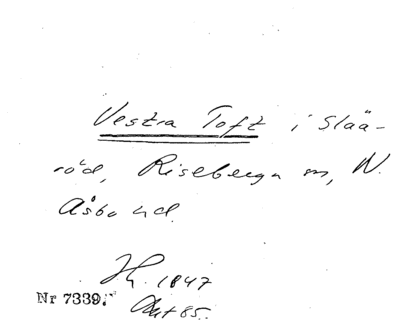 Vestra Toft i Slää-
röd, Riseberga sn, N.
Åsbo hd.
1847
Nr 7339.
Akt 85.